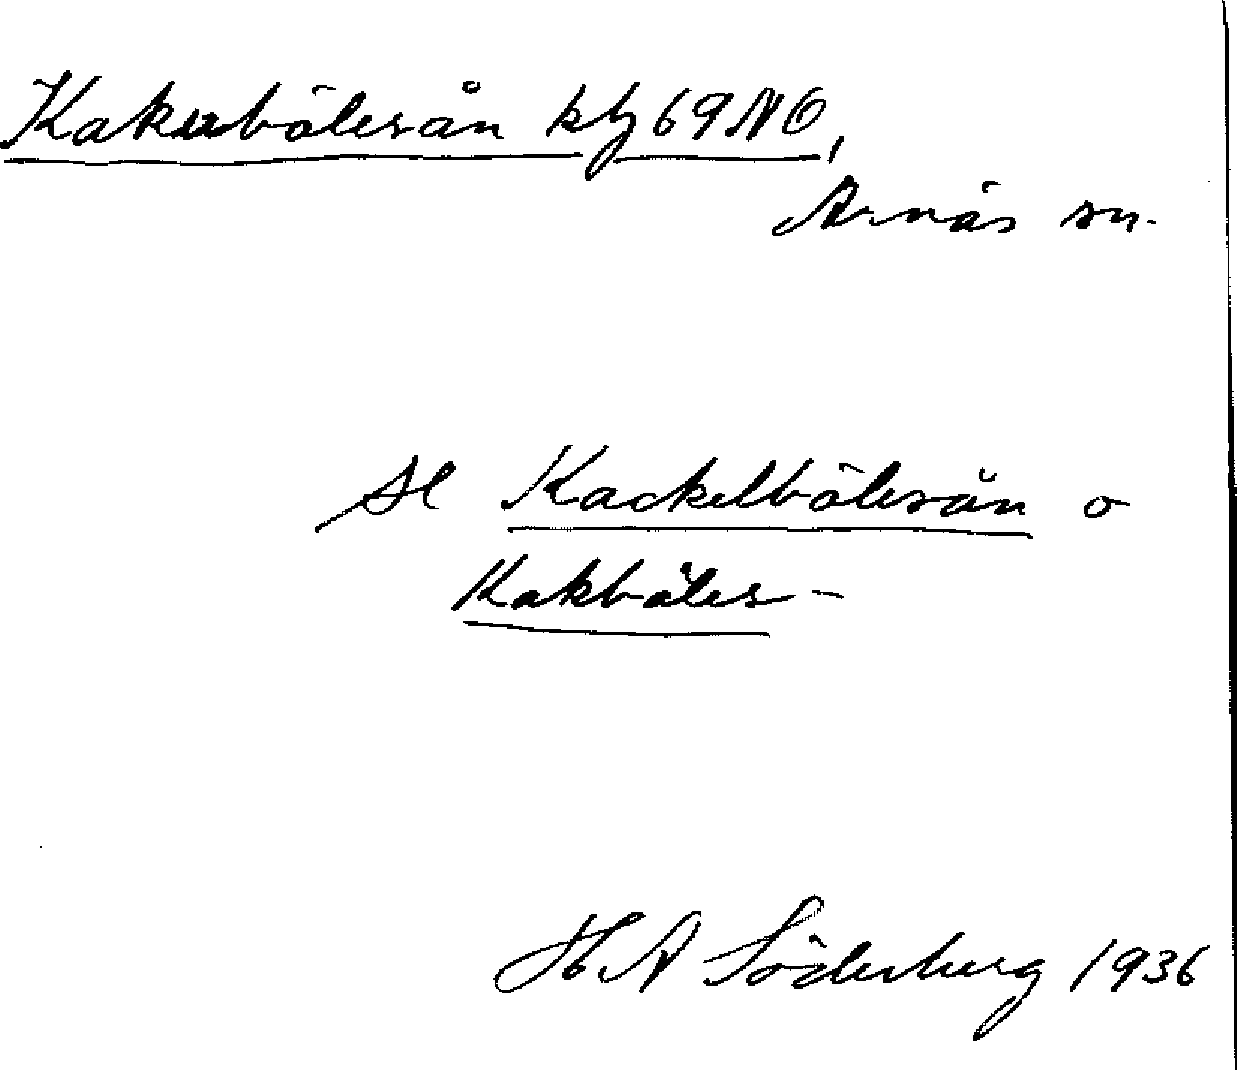 Kakubölesån kbl 69 NO,
Arnäs sn.
Se Kackelbölesån o
Kakböles-
H A Söderberg 1936